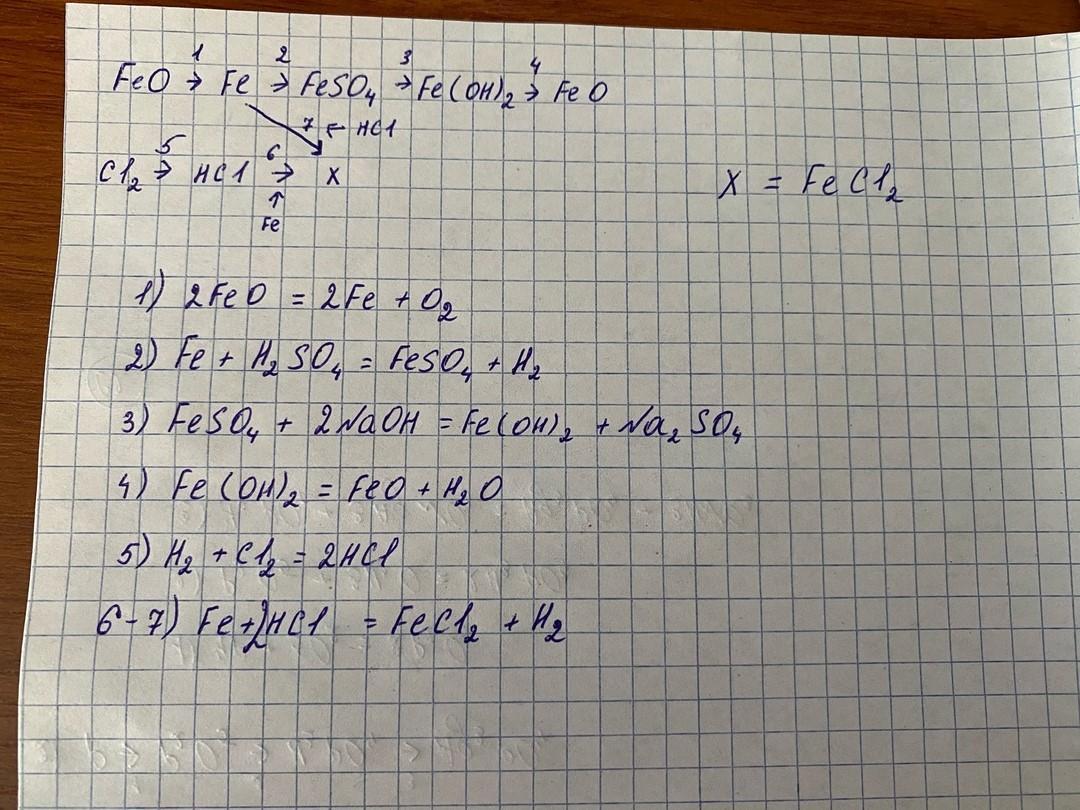 1 2 3 4
FeO → Fe → FeSO₄ → Fe(OH)₂ → FeO
7 ← HCl
5 6
Cl₂ → HCl → X X = FeCl₂
↑
Fe
1) 2FeO = 2Fe + O₂
2) Fe + H₂SO₄ = FeSO₄ + H₂
3) FeSO₄ + 2NaOH = Fe(OH)₂ + Na₂SO₄
4) Fe(OH)₂ = FeO + H₂O
5) H₂ + Cl₂ = 2HCl
6-7) Fe+2HCl = FeCl₂ + H₂